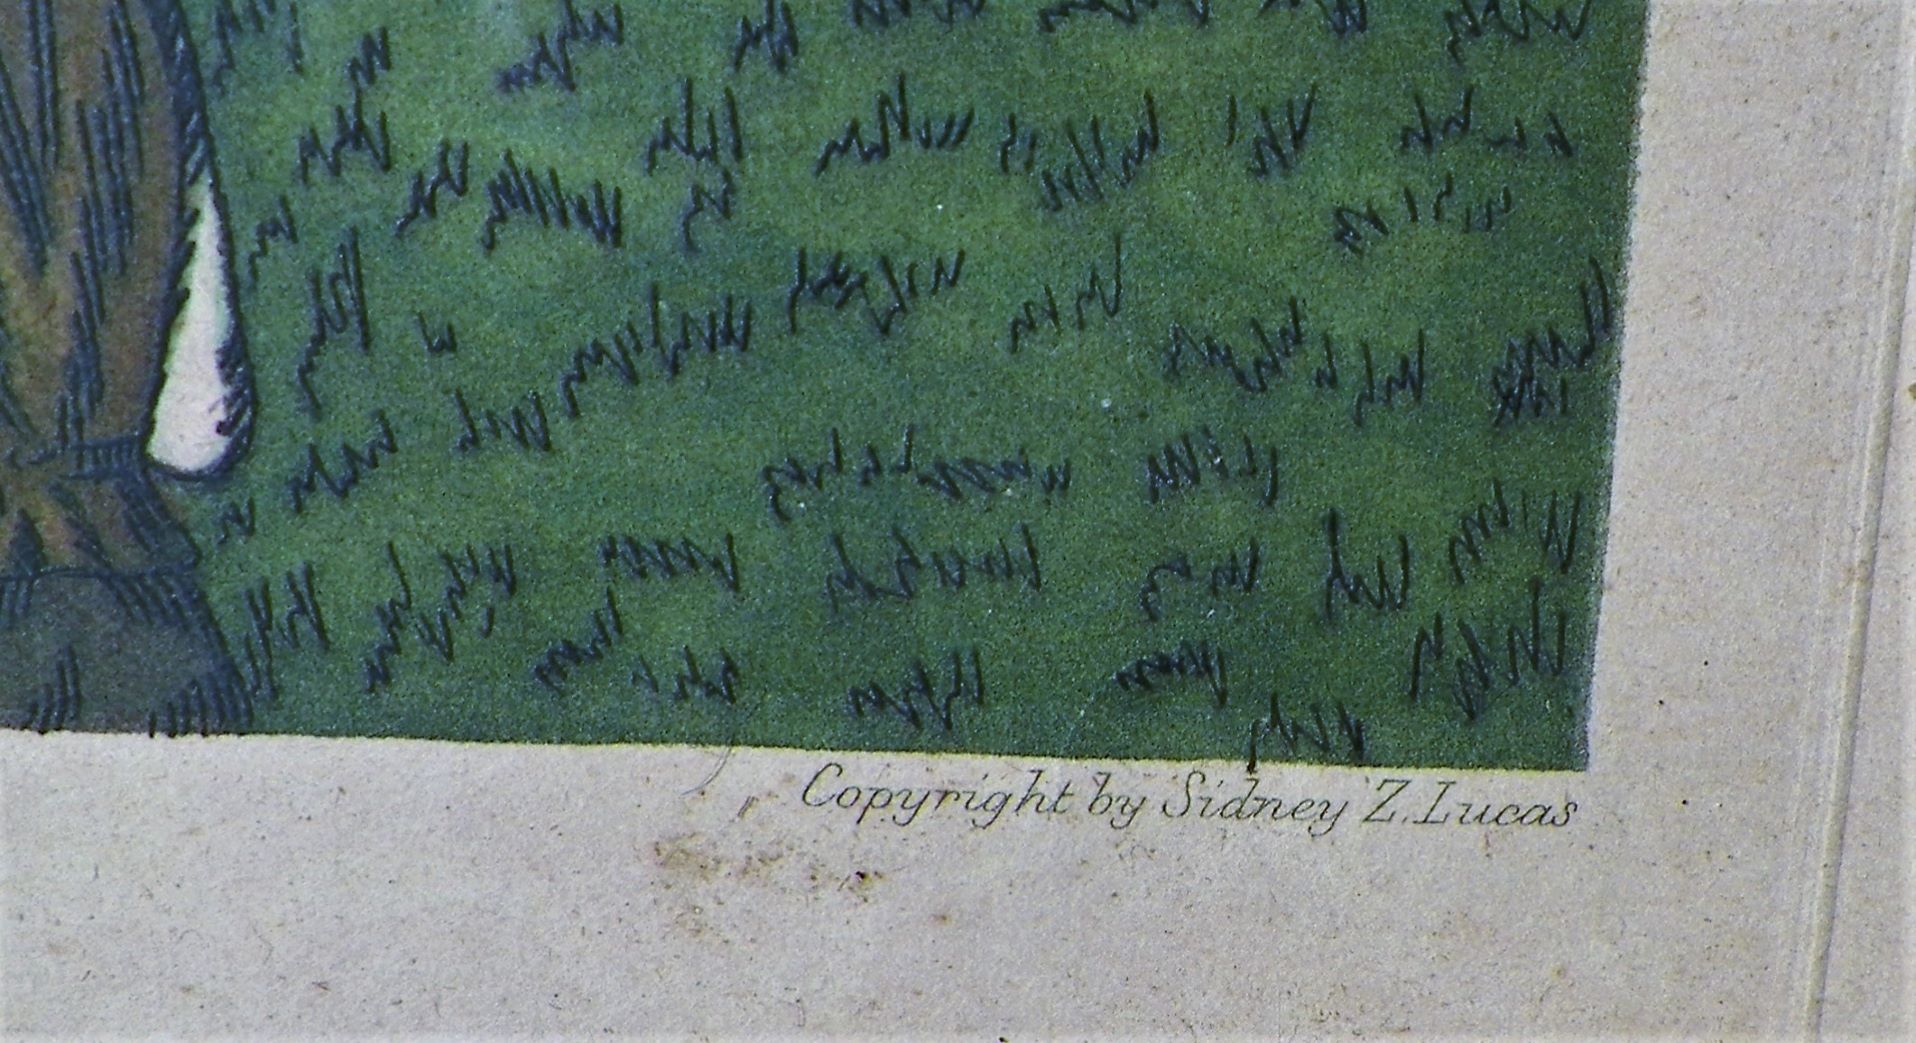 Copyright by Sidney Z. Lucas